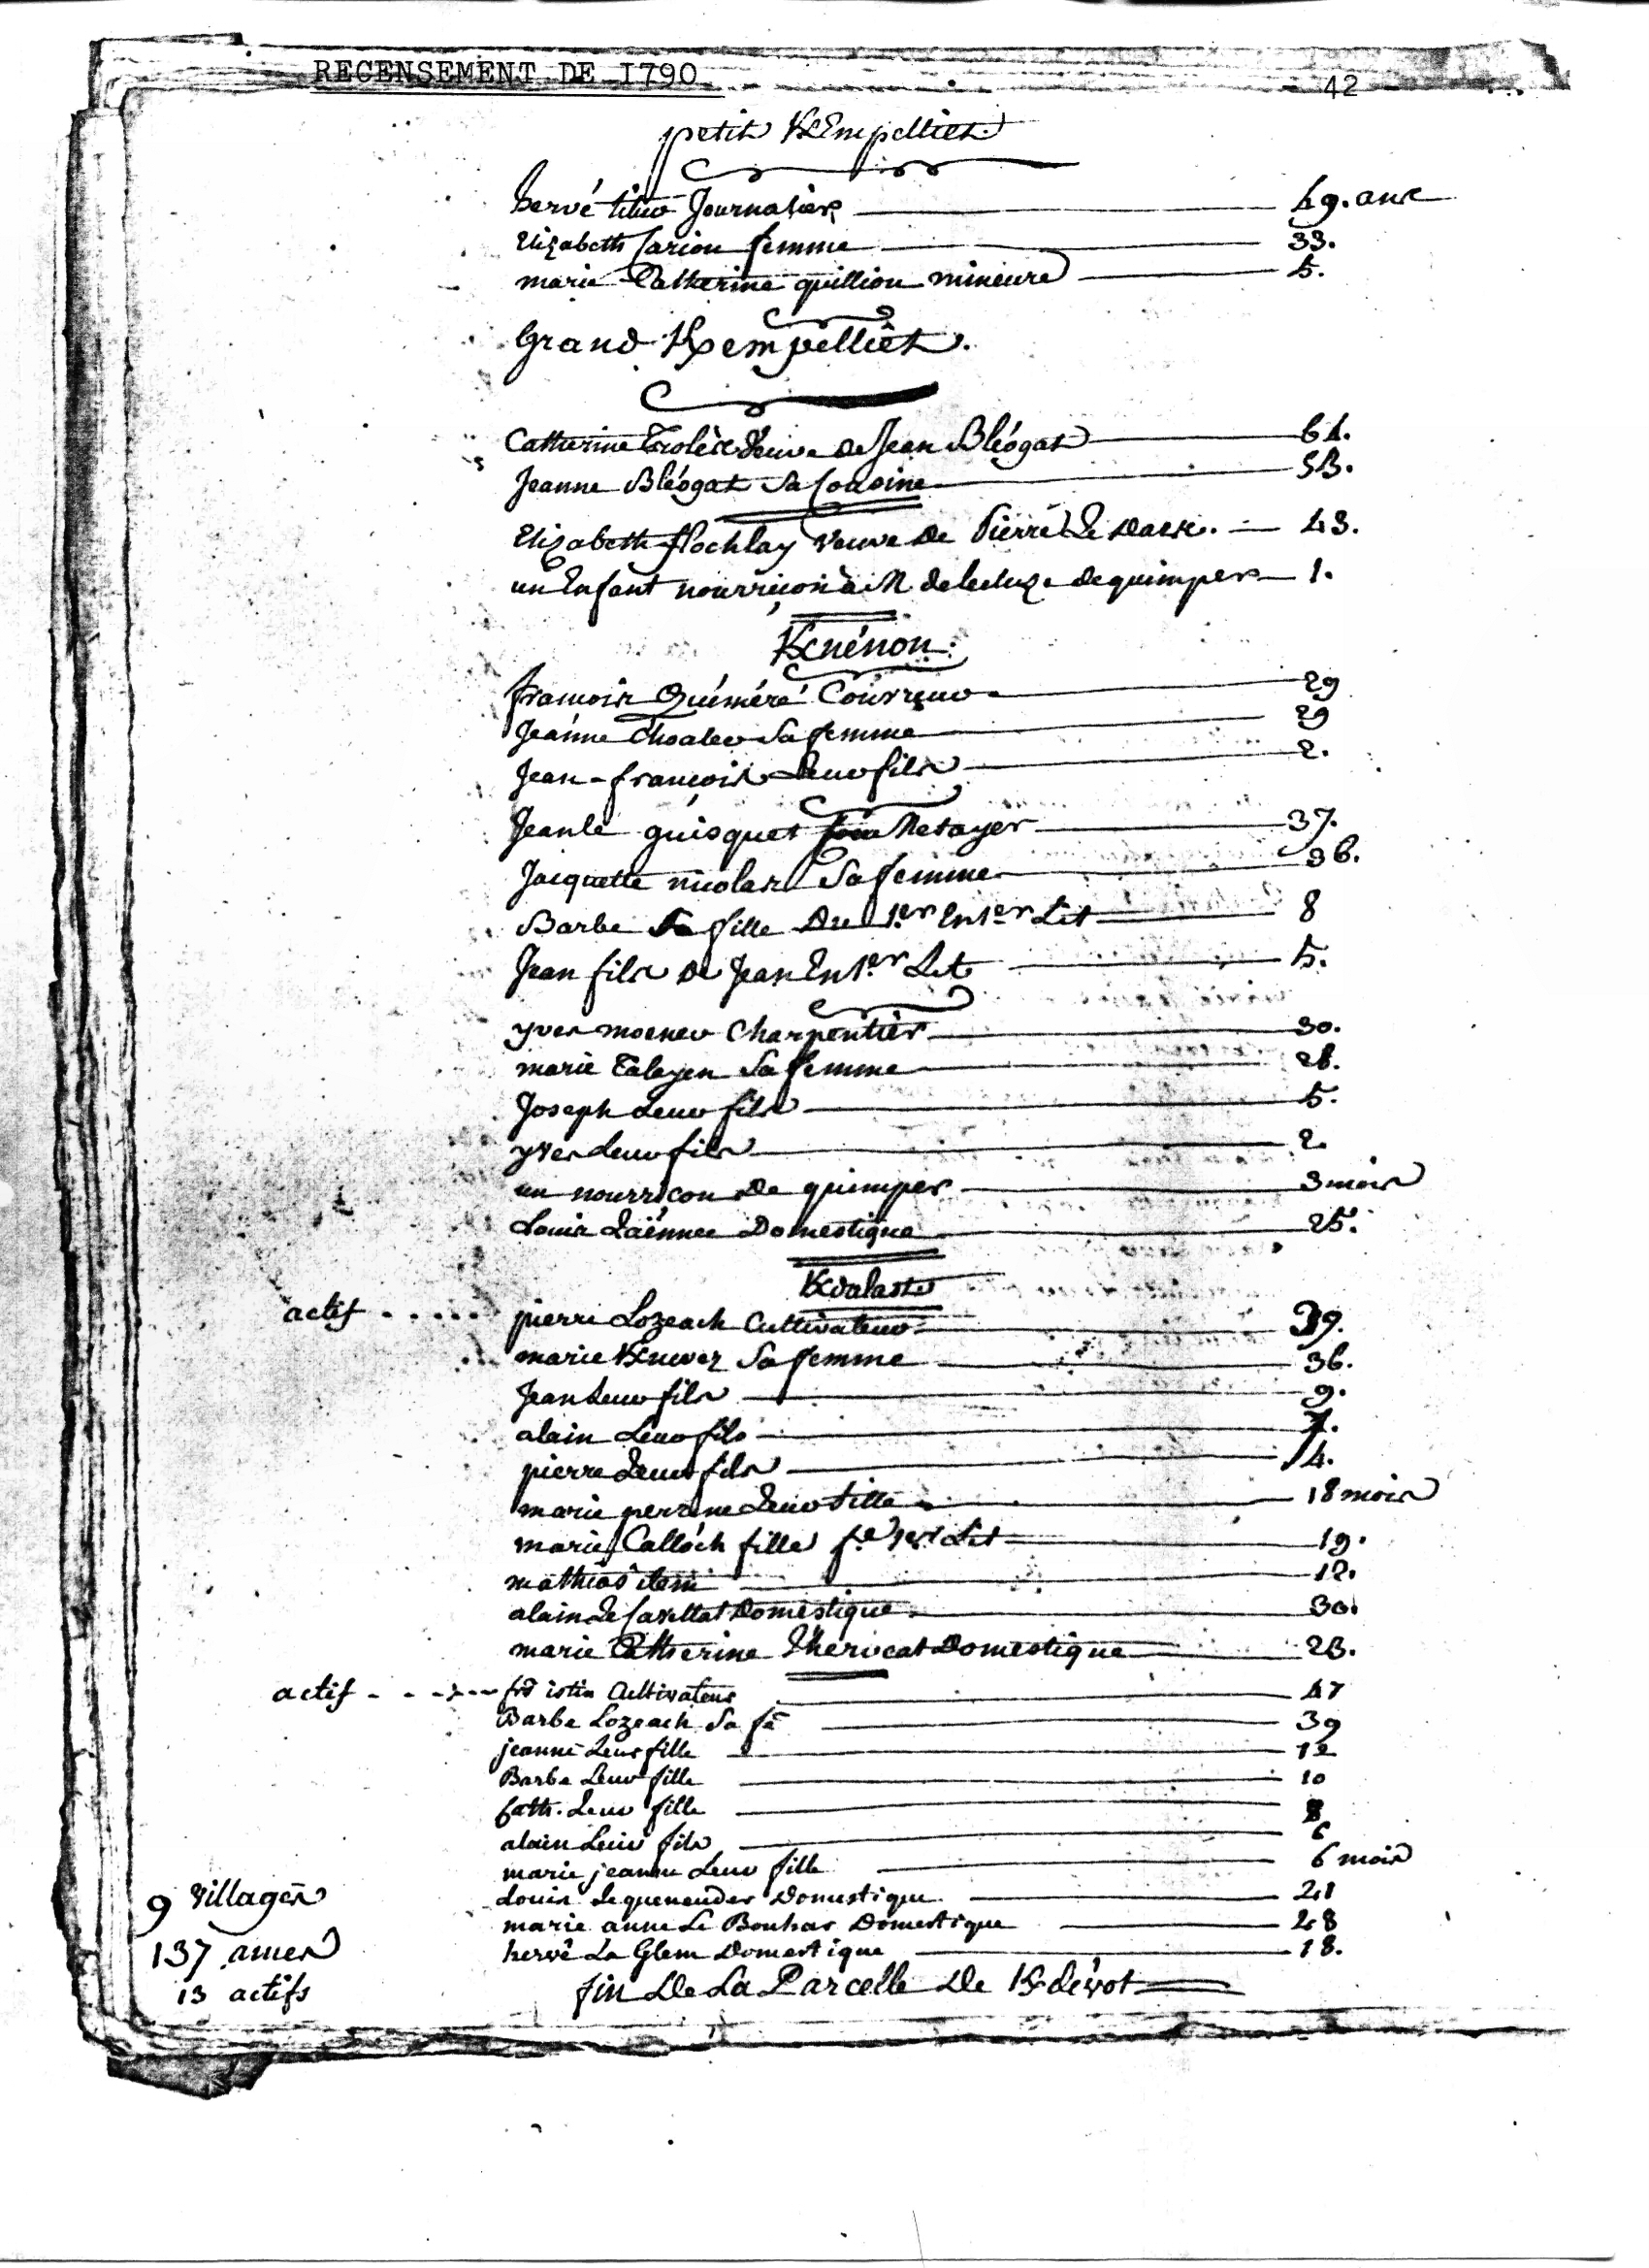 RECENSEMENT DE I790
42
petit KEmpelliet
hervé Journalier 49. ans
Elizabeth Cariou femme 33.
marie Catherine quilliou mineure 5.
Grand Kempelliet.
Catherine veuve de Jean Bléogat 61.
Jeanne Bléogat Sa Cousine 53.
Elizabeth flochlay veuve De Pierre Le 43.
un Enfant nourriçon à M de quimper 1.
Kénénon
francois Quéméré Couvreur 29
Jeanne Choalec Sa femme 29
Jean-francois Leur fils 2.
Jean le guisquet Metayer 37.
Jacquette nicolas Sa femme 36.
Barbe Sa fille Du 1er En 1er Lit 8
Jean fils De Jean En 1er Lit 5.
yves moenev Charpentier 30.
marie Talegen Sa femme 26.
Joseph Leur fils 5.
yves Leur fils 2.
un nourricon De quimper 3 mois
Louis Laënnec Domestique 25.
Kvalast
actif pierre Lozeach Cultivateur 39.
marie Sa femme 36.
Jean Leur fils 9.
alain Leur fils 7.
pierre Leur fils 4.
marie perrine Leur fille 18 mois
marie Calloch fille fe 1er Lit 19.
mathias item 12.
alain Le Domestique 30.
marie Catherine Domestique 23.
actif istin Cultivateur 47
Barbe Lozeach Sa fe 39
jeanne Leur fille 12
Barbe Leur fille 10
Cath. Leur fille 8
alain Leur fils 6
marie jeanne Leur fille 6 mois
Louis Le queneuder Domestique 21
marie anne Le Bouhar Domestique 28
hervé Le Glem Domestique 18.
9 villages
137 ames
13 actifs
fin De La Parcelle De Kdévot